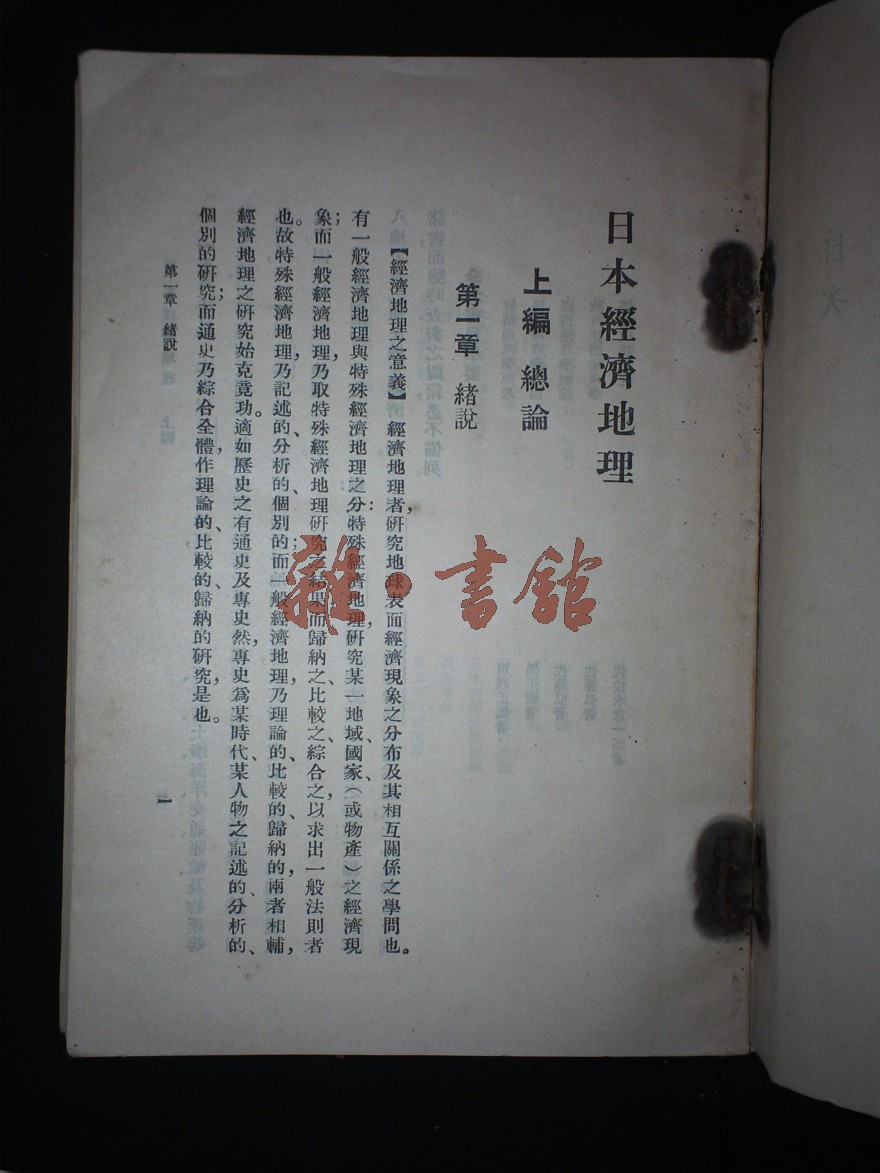 日本經濟地理
上編 總論
第一章 緒說
【經濟地理之意義】 經濟地理者，研究地球表面經濟現象之分布及其相互關係之學問也。
有一般經濟地理與特殊經濟地理之分：特殊經濟地理，研究某一地域、國家、（或物產）之經濟現
象；而一般經濟地理，乃取特殊經濟地理研究之結果，而歸納之、比較之、綜合之，以求出一般法則者
也。故特殊經濟地理，乃記述的、分析的、個別的；而一般經濟地理，乃理論的、比較的、歸納的，兩者相輔，
經濟地理之研究始克竟功。適如歷史之有通史及專史然，專史爲某時代、某人物之記述的、分析的、
個別的研究；而通史乃綜合全體，作理論的、比較的、歸納的研究，是也。
第一章 緒說
一
雜·書館
目次